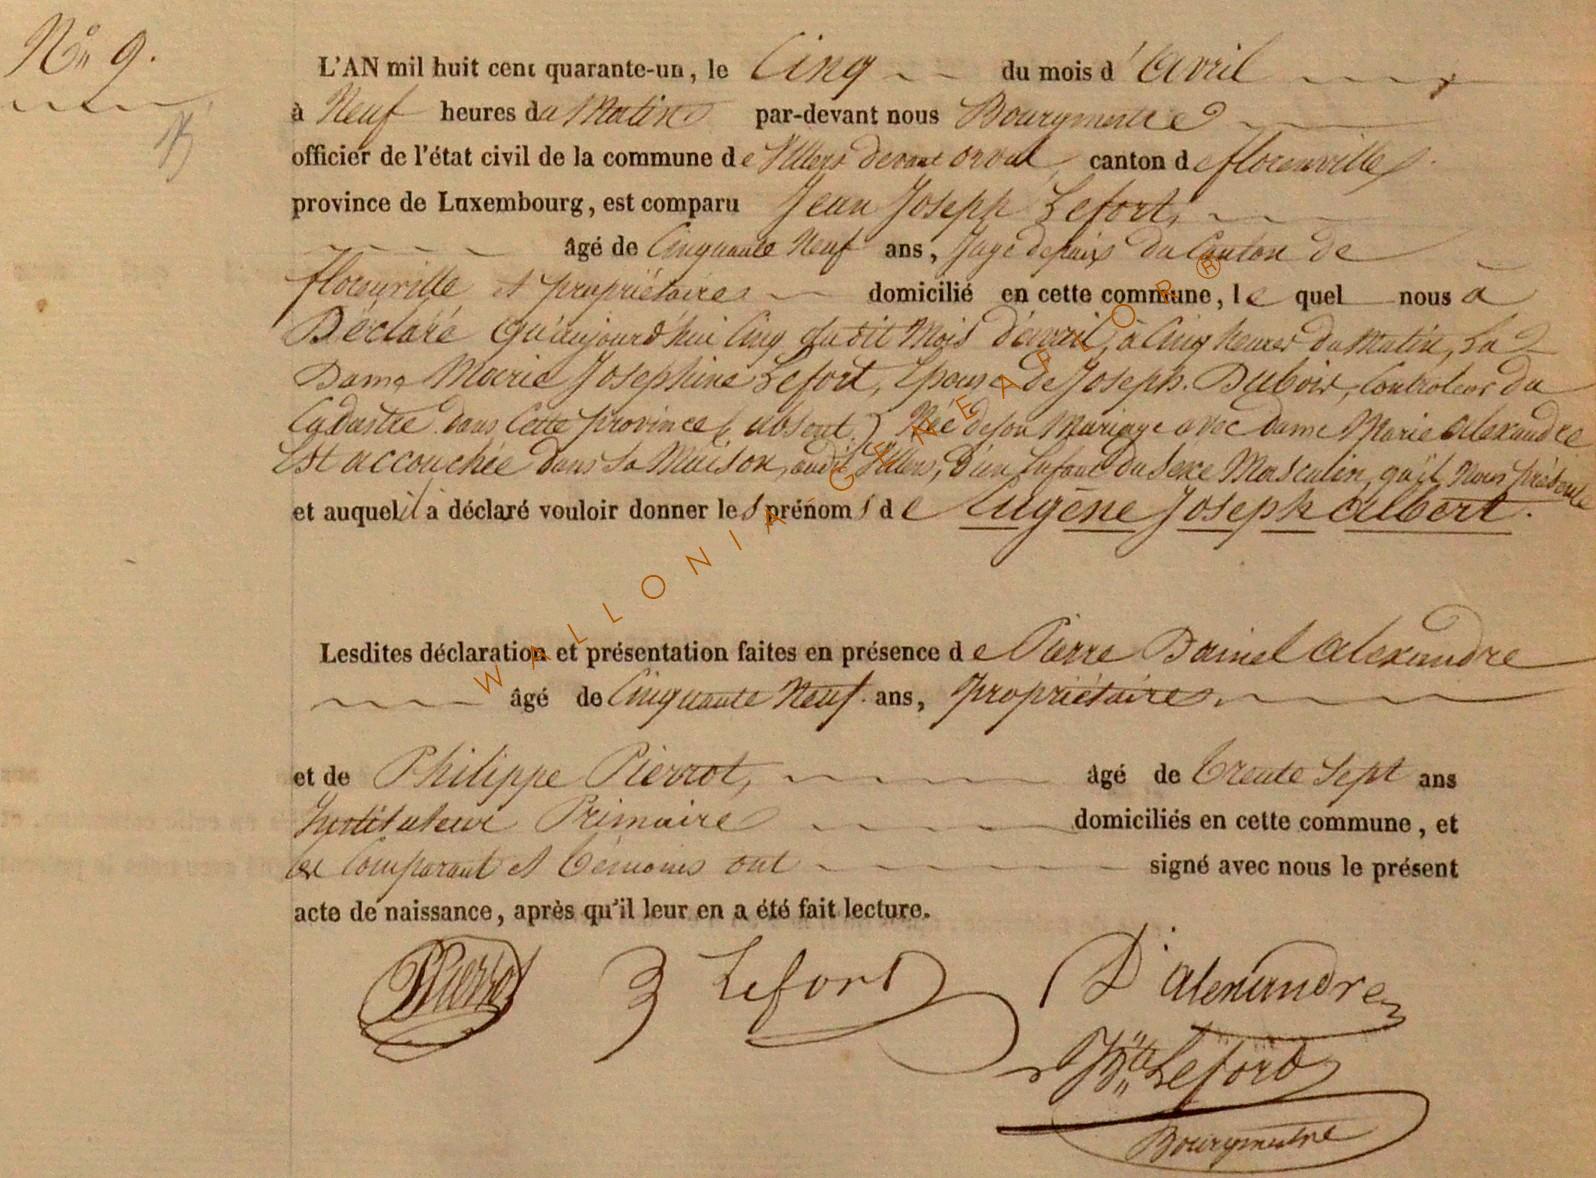 N° 9.
L'AN mil huit cent quarante-un, le Cinq du mois d'Avril
à Neuf heures du Matin par-devant nous Bourgmestre
officier de l'état civil de la commune de Villers devant orval canton de florenville
province de Luxembourg, est comparu Jean Joseph Lefort,
âgé de Cinquante Neuf ans, Juge de paix du Canton de
florenville et propriétaire domicilié en cette commune, le quel nous a
Déclaré qu'aujourd'hui Cinq dudit Mois d'avril, à Cinq heures du Matin, La
Dame Marie Josephine Lefort, Epouse de Joseph Dubois, Controleur du
Cadastre dans Cette province (absent) Née de son Mariage avec dame Marie alexandre
Est accouchée dans sa Maison, audit Villers, d'un Enfant du sexe Masculin, qu'il Nous présente
et auquel il a déclaré vouloir donner les prénoms de Eugène Joseph albert.
Lesdites déclaration et présentation faites en présence de Pierre Daniel alexandre
âgé de Cinquante Neuf ans, propriétaire,
et de Philippe Pierrot, âgé de trente sept ans
Instituteur Primaire domiciliés en cette commune, et
les Comparant et témoins ont signé avec nous le présent
acte de naissance, après qu'il leur en a été fait lecture.
PPierrot J Lefort D'alexandre
Lefort
Bourgmestre
WALLONIA-GENEAPLOR ®